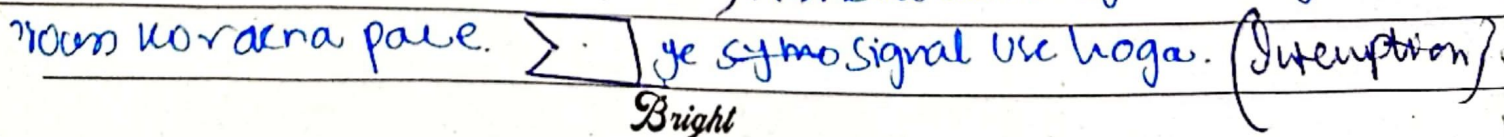 karna pade. ye symo signal use hoga. (Interruption).
Bright